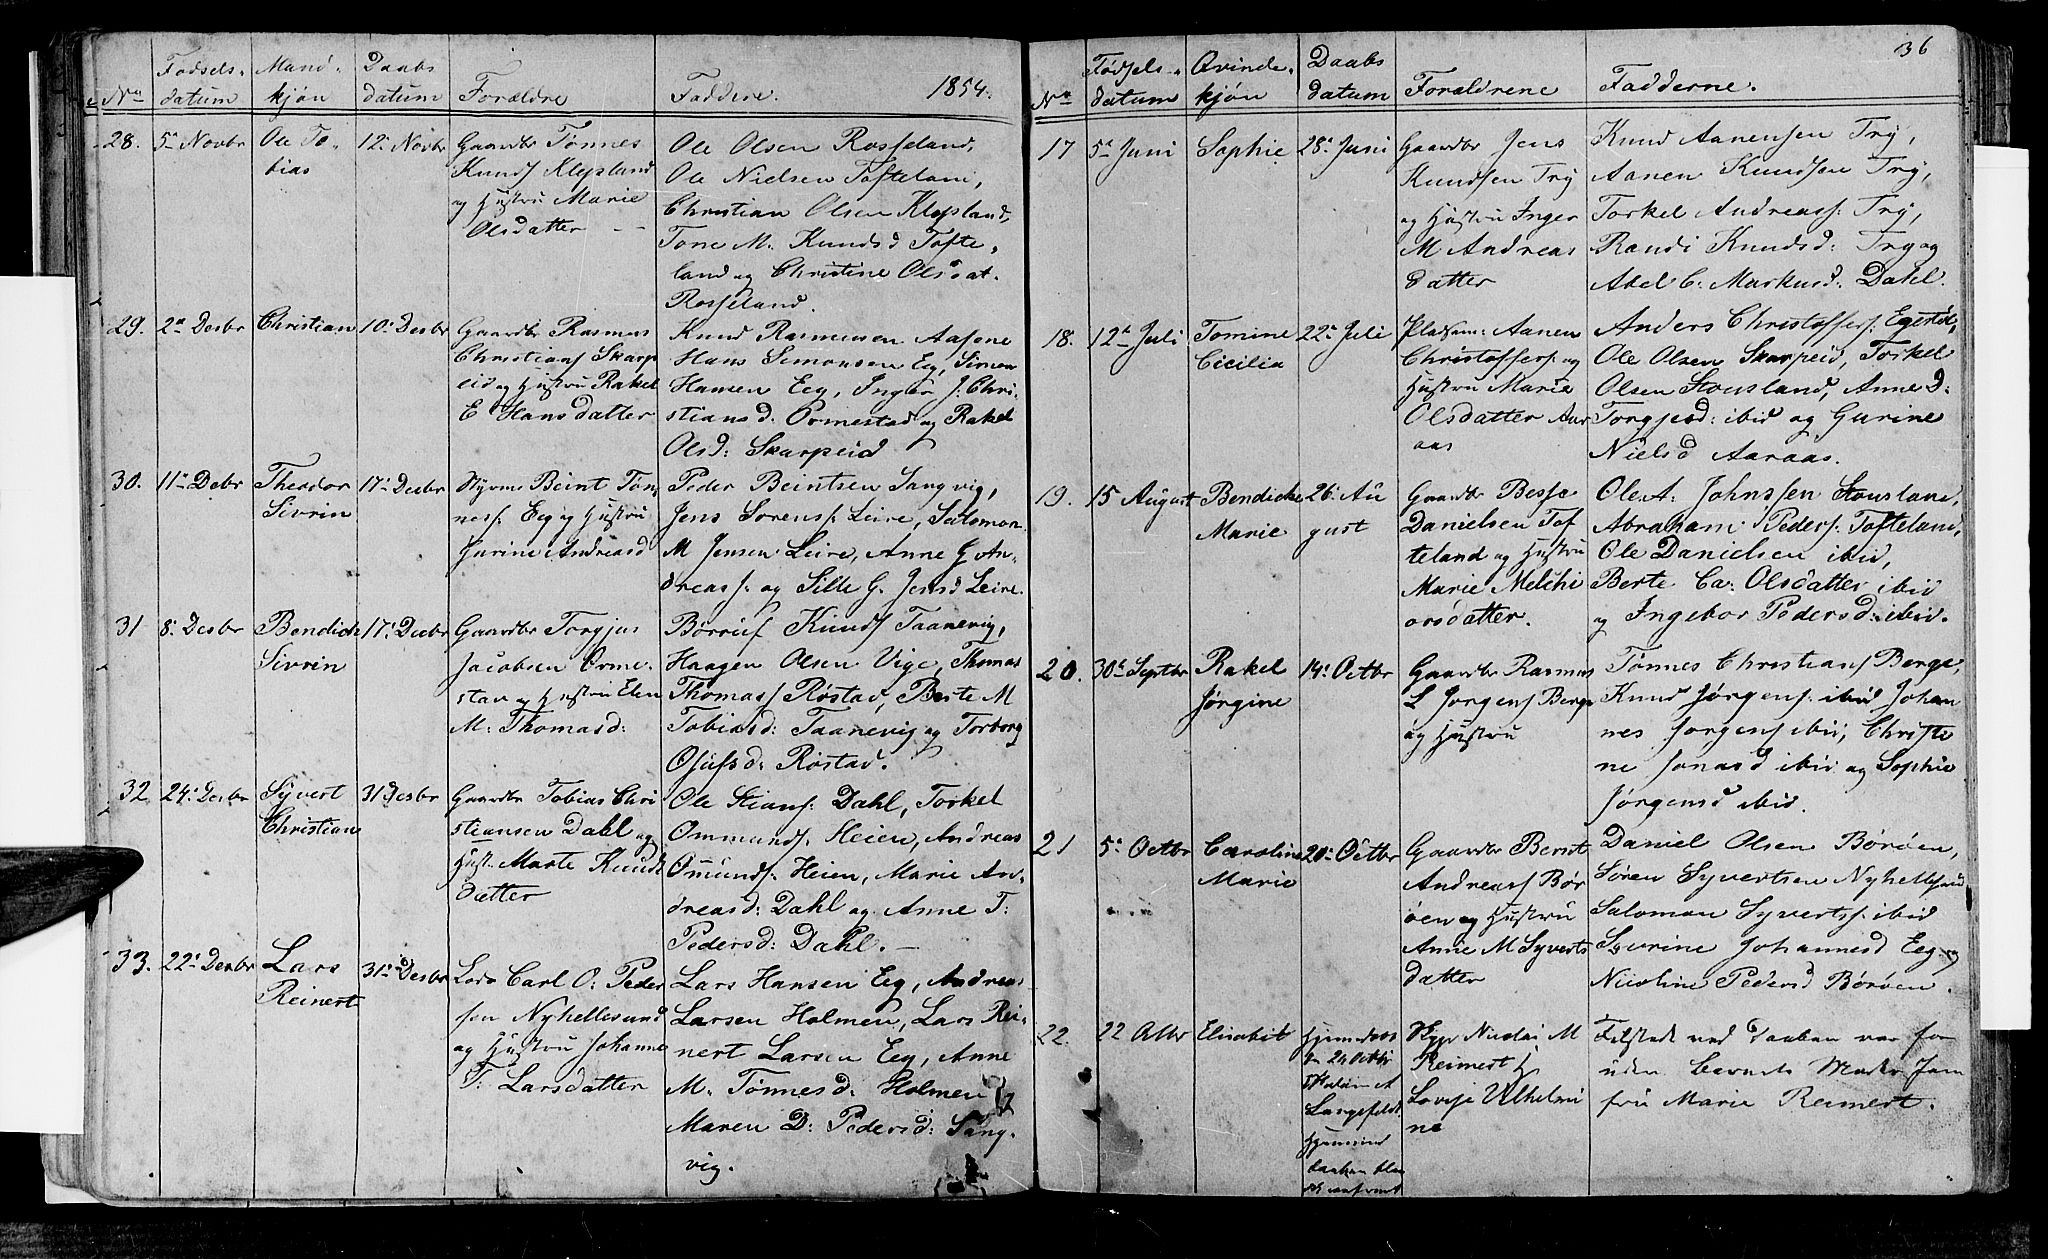 No
Fødsels-
datum
Mand-
kjön
Daabs
datum
Forældre
Faddere.
1854.
28.
5te Novbr
Ole To-
bias
12te Novbr
Gaardbr Tönnes
Knuds Klepland
og Hustru Marie
Olsdatter
Ole Olsen Rosseland,
Ole Nielsen Tofteland,
Christian Olsen Klepland,
Tone M. Knudsd Tofte-
land og Christine Olsdat.
Rosseland.
29.
2den Desbr
Christian
10. Desbr
Gaardbr Rasmus
Christians Skarp
eid og Hustru Rakel
E Hansdatter
Knud Rasmusen Aasene
Hans Simonsen Eg, Simon
Hansen Eeg, Inger J. Chri-
stiansd: Ormestad og Rakel
Olsd: Skarpeid
30.
11te Debr
Theodor
Sivrin
17de Desbr
Styrm Beint Tøn
ness. Eeg og Hustru
Gurine Andreasd
Peder Beintsen Sangvig,
Jens Sørens: Leire, Salomon
M Jensen Leire, Anne G An-
dreass. og Sille G. Jensd Leire.
31
8: Desbr
Bendick
Sivrin
17: Desbr
Gaardbr Torgjus
Jacobsen Orme-
stad og Hustru Elen
M: Thomasd:
Børruf Knuds Taanevig,
Haagen Olsen Vige, Thomas
Thomass Røstad, Berte M
Tobiasd: Taanevig og Torborg
Osufsd: Røstad.
32
24: Desbr
Syvert
Christian
31 Desbr
Gaardbr Tobias Chri
stiansen Dahl og
Hust. Marte Knuds
datter
Ole Stians: Dahl, Torkel
Ommunds: Heien, Andreas
Omunds: Heien, Marie An-
dreasd: Dahl og Anne T:
Pedersd: Dahl.
33.
22: Desbr
Lars
Reinert
31: Desbr
Lods Carl O: Peder
sen Nyhellesund
og Hustru Johanne
T: Larsdatter
Lars Hansen Eeg, Andreas
Larsen Holmen, Lars Rei-
nert Larsen Eeg, Anne
M. Tønnesd: Holmen og
Maren D: Pedersd: Sang-
vig.
36
No
Fødsels-
datum
Qvinde-
kjön
Daabs
datum
Forældrene
Fadderne.
17
5te Juni
Sophie
28: Juni
Gaardbr Jens
Knudsen Try
og Hustru Inger
M Andreas
datter
Knud Aanensen Try,
Aanen Knudsen Try,
Torkel Andreass: Try,
Randi Knudsd: Try og
Abel C. Markusd: Dahl.
18.
12te Juli
Tomine
Cicilia
22de Juli
Pladsm: Aanen
Christoffers og
Hustru Marie
Olsdatter Aar
aas
Anders Christoffers: Egestöl,
Ole Olsen Skarpeid, Torkel
Olsen Stousland, Anne D:
Torgjusd: ibid og Gurine
Nielsd Aaraas.
19.
15 August
Bendicke
Marie
26: Au
gust
Gaardbr Besse
Danielsen Tof
teland og Hustru
Marie Melchi
orsdatter.
Ole A. Johnssen Stousland,
Abraham Peders: Tofteland,
Ole Danielsen ibid,
Berte Ca: Olsdatter ibid
og Ingebor Pedersd: ibid.
20.
30te Septbr
Rakel
Jørgine
14: Octbr
Gaardbr Rasmus
L Jørgens Berge
og Hustru
Tønnes Christians Berge,
Knud Jørgens: ibid Johan
nes Jørgens ibid, Christi
ne Jonasd ibid og Sophie
Jørgensd ibid.
21
5te Octbr
Caroline
Marie
20: Octbr
Gaardbr Berndt
Andreass Bör
öen og Hustru
Anne M Syverts
datter
Daniel Olsen Börøen,
Søren Syvertsen Nyhellesund
Salomon Syvertss: ibid
Syvrine Johannesd Eeg og
Nicoline Pedersd Börøen.
22.
22 Octbr
Elisabet
Hjemmedøbt
24 Octbr
Langefeldt
Hjemme
daaben
Skpr Nicolai M
Reimert &
Lovise Vilhelmi
ne
Tilstede ved Daaben var for
uden Barnets Moder Jom
fru Marie Reimert.